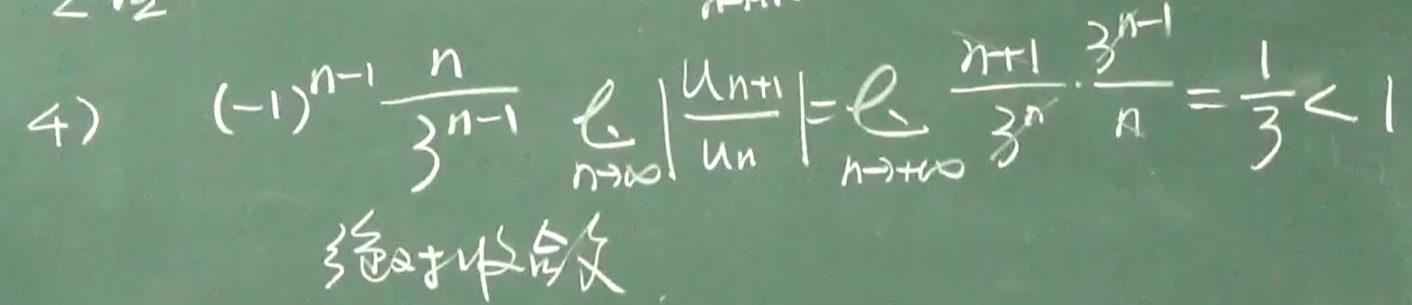 4) (-1)^{n-1} \frac{n}{3^{n-1}} \lim_{n→∞} |\frac{u_{n+1}}{u_n}| = \lim_{n→+∞} \frac{n+1}{3^n} · \frac{3^{n-1}}{n} = \frac{1}{3} < 1
绝对收敛